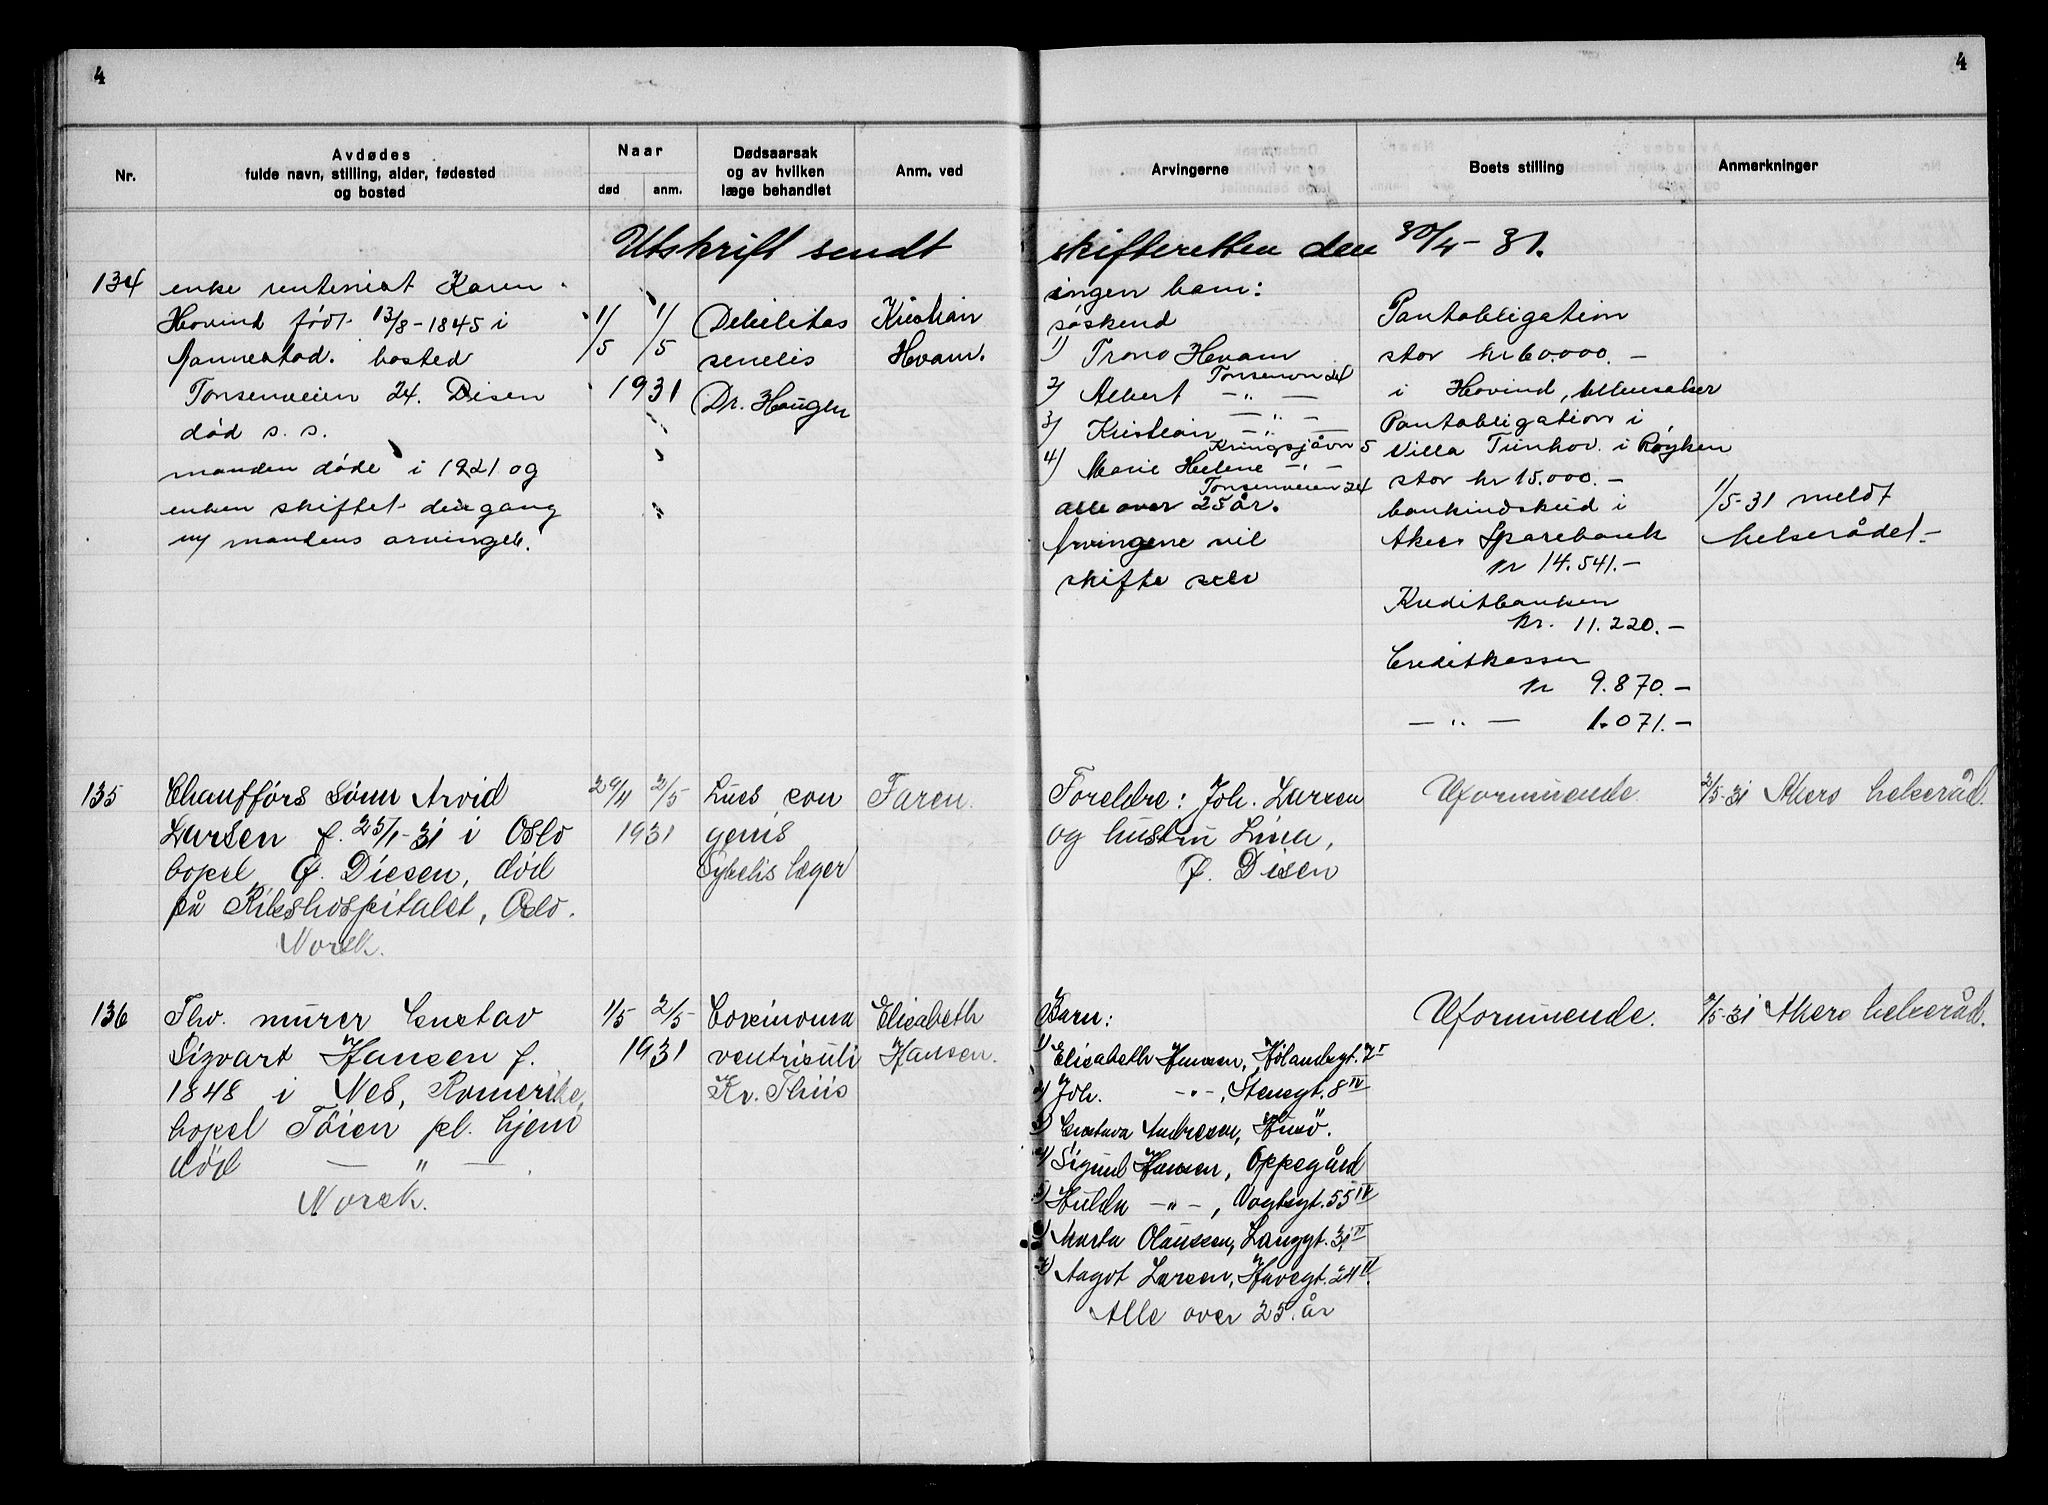 4
4
Nr.
Avdødes
fulde navn, stilling, alder, fødested
og bosted
Naar
død
anm.
Dødsaarsak
og av hvilken
læge behandlet
Anm. ved
Arvingerne
Boets stilling
Anmerkninger
Utskrift sendt skifteretten den 30/4-31.
134
enke rentenist Karen
Hovind født 13/8-1845 i
Nannestad. bosted
Tonsenveien 24. Disen
død s. s.
manden døde i 1921 og
enken skiftet dengang
m/ mandens arvinger.
1/5 1/5
1931
Debilitas
senelis
Dr. Haugen
Kristian
Hvam.
ingen barn:
søskend
1) Trono Hvam
Tonsenvn 24
2) Albert -"-
-"-
3) Kristian -"-
Kringsjåvn 5
4) Marie Helene -"-
Tonsenveien 24
alle over 25 år.
Arvingene vil
skifte selv
Pantobligation
stor kr 60.000.-
i Hovind, Ullensaker
Pantobligation i
Villa Tunhov. i Røyken
stor kr 15.000.-
bankindskud i
Akers Sparebank
kr 14.541.-
Kreditbanken
kr. 11.220.-
Creditkassen
kr 9.870.-
-"- 1.071.-
1/5-31 meldt
helserådet.-
135
Chaufførs sønn Arvid
Larsen f. 25/1-31 i Oslo
bopel Ø. Diesen, død
på Rikshospitalet, Oslo.
Norsk.
29/4 2/5
1931
Lues con
genis
Sykehs læger
Faren.
Foreldre: Joh. Larsen
og hustru Lina,
Ø. Disen
Uformuende.
2/5-31 Akers helseråd.
136
Fhv. murer Gustav
Sigvart Hansen f.
1848 i Nes, Romerike,
bopel Tøien pl. hjem
død -"-.
Norsk.
1/5 2/5
1931
Carcinoma
ventriculi
Kr. Thiis
Elisabeth
Hansen.
Barn:
1) Elisabeth Hansen, Hølandsgt. 7 I
2) Joh. -"-, Stensgt. 8 IV
3) Gustava Andresen, Husö.
4) Sigurd Hansen, Oppegård
5) Hulda -"-, Vogtsgt. 55 IV
6) Marta Olaussen, Langgt. 31 II
7) Aagot Larsen, Havegt. 24 II.
Alle over 25. år
Uformuende.
2/5-31 Akers helseråd.